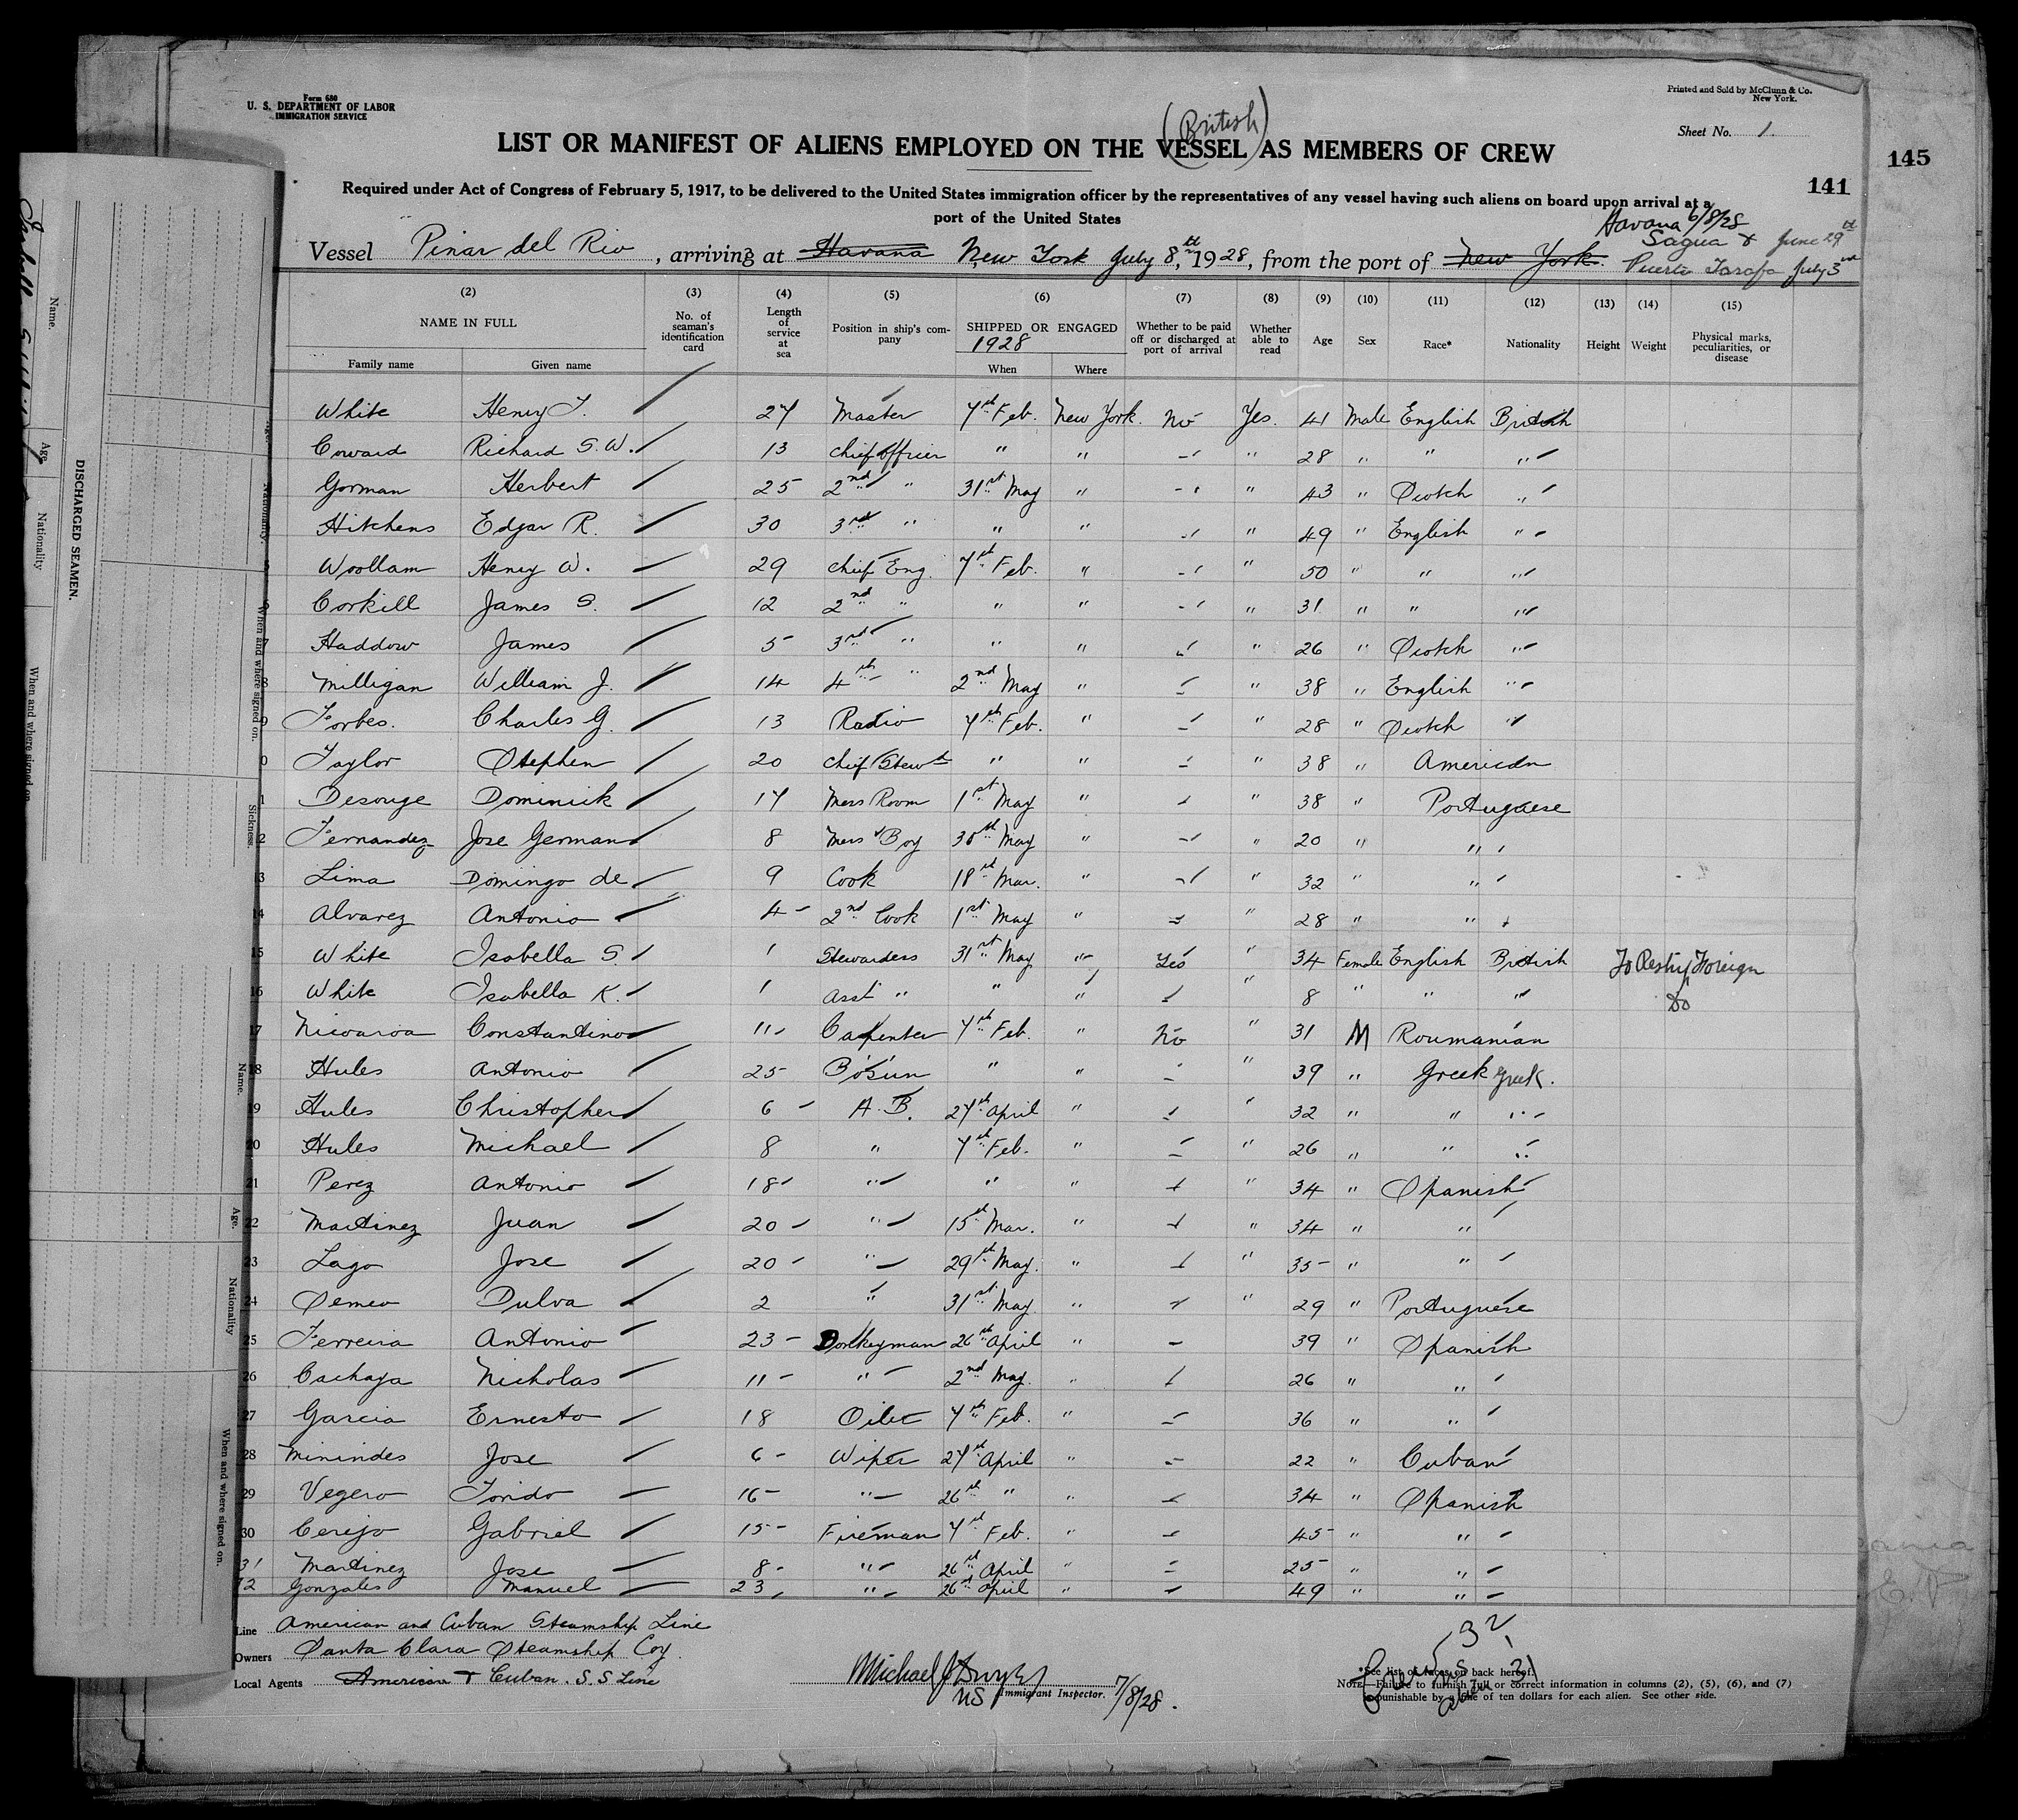 Form 680
U. S. DEPARTMENT OF LABOR
IMMIGRATION SERVICE
Printed and Sold by McClunn & Co.
New York.
Sheet No. 1
(British)
LIST OR MANIFEST OF ALIENS EMPLOYED ON THE VESSEL AS MEMBERS OF CREW
145
141
Required under Act of Congress of February 5, 1917, to be delivered to the United States immigration officer by the representatives of any vessel having such aliens on board upon arrival at a
port of the United States
Havana 6/8/28
Sagua & June 29th
Vessel Pinar del Rio, arriving at Havana New York July 8th, 1928, from the port of New York. Puerto Tarafa July 3rd
(2) (3) (4) (5) (6) (7) (8) (9) (10) (11) (12) (13) (14) (15)
NAME IN FULL Family name Given name No. of seaman's identification card Length of service at sea Position in ship's company SHIPPED OR ENGAGED 1928 When Where Whether to be paid off or discharged at port of arrival Whether able to read Age Sex Race* Nationality Height Weight Physical marks, peculiarities, or disease
White Henry T. 27 Master 7th Feb. New York. No Yes. 41 Male English British
Coward Richard S. W. 13 Chief Officer " " " 28 " " "
Gorman Herbert 25 2nd " 31st May " " 43 " Scotch "
Hitchens Edgar R. 30 3rd " " " " 49 " English "
5 Woollam Henry W. 29 Chief Eng. 7th Feb. " " 50 " " "
6 Corkill James S. 12 2nd " " " " 31 " " "
7 Haddow James 5 3rd " " " " 26 " Scotch "
8 Milligan William J. 14 4th " 2nd May " " 38 " English "
9 Forbes. Charles G. 13 Radio 7th Feb. " " 28 " Scotch "
0 Taylor Stephen 20 Chief Stewd " " " 38 " American
1 Desouge Dominick 17 Mess Room 1st May " " 38 " Portuguese
2 Fernandez Jose German 8 Mess Boy 30th May " " 20 " "
13 Lima Domingo de 9 Cook 18th Mar. " " 32 " "
14 Alvarez Antonio 4 2nd Cook 1st May " " 28 " "
15 White Isabella S. 1 Stewardess 31st May " Yes " 34 Female English British To Reship Foreign
16 White Isabella K. 1 Asst " " " " 8 " " " Do
17 Nicoaroa Constantino 11 Carpenter 7th Feb. " No " 31 M Roumanian
18 Hules Antonio 25 Bosun " " " 39 " Greek Greek.
19 Hules Christopher 6 A. B. 27th April " " 32 " " "
20 Hules Michael 8 " 7th Feb. " " 26 " " "
21 Perez Antonio 18 " " " " 34 " Spanish
22 Martinez Juan 20 " 15th Mar. " " 34 " "
23 Lago Jose 20 " 29th May. " " 35 " "
24 Semeo Dulva 2 " 31st May. " " 29 " Portuguese
25 Ferreira Antonio 23 Donkeyman 26th April " 39 " Spanish
26 Cachaya Nicholas 11 " 2nd May. " 26 " "
27 Garcia Ernesto 18 Oiler 7th Feb. " 36 " "
28 Minindes Jose 6 Wiper 27th April " 22 " Cuban
29 Vegero Torido 16 " 26th " " 34 " Spanish
30 Cerejo Gabriel 15 Fireman 7th Feb. " 45 " "
31 Martinez Jose 8 " 26th April " 25 " "
32 Gonzales Manuel 23 " 26th April " 49 " "
Line American and Cuban Steamship Line
Owners Santa Clara Steamship Coy.
Local Agents American & Cuban. S. S Line
Michael J Dwyer 7/8/28.
US Immigrant Inspector.
32
31
*See list of races on back hereof.
NOTE—Failure to furnish full or correct information in columns (2), (5), (6), and (7)
is punishable by a fine of ten dollars for each alien. See other side.
DISCHARGED SEAMEN.
Name.
Age.
Nationality
When and where signed on.
Nationality.
When and where signed on.
Sickness.
Name.
Age.
Nationality
When and where signed on.